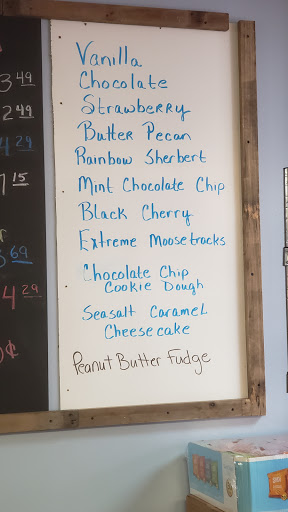 Vanilla
Chocolate
Strawberry
Butter Pecan
Rainbow Sherbert
Mint Chocolate Chip
Black Cherry
Extreme Moosetracks
Chocolate Chip
Cookie Dough
Seasalt Caramel
Cheesecake
Peanut Butter Fudge
3 49
2 49
4 29
15
69
4 29
0¢